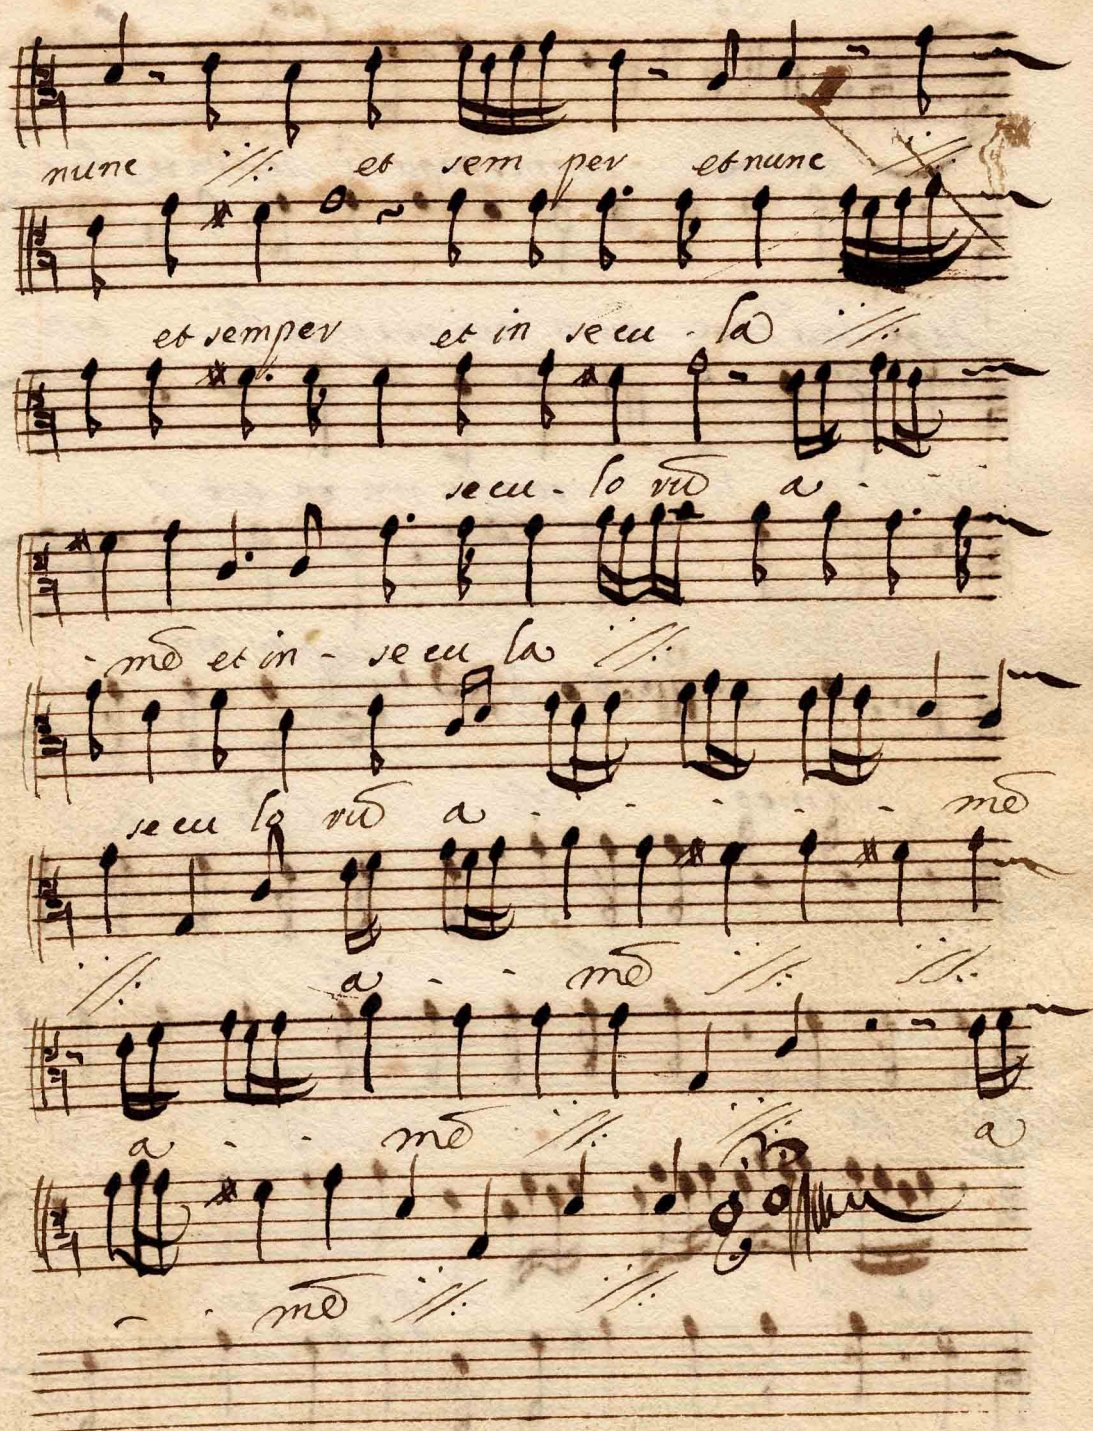 nunc ·//· et sem per et nunc ·//·
et semper et in secu - la ·//·
secu - lo rū a - -
- mē et in - secu la ·//·
secu lo rū a - - - - - mē
·//· a - - mē ·//· ·//·
a - - mē ·//· ·//· a
- - mē ·//· ·//·